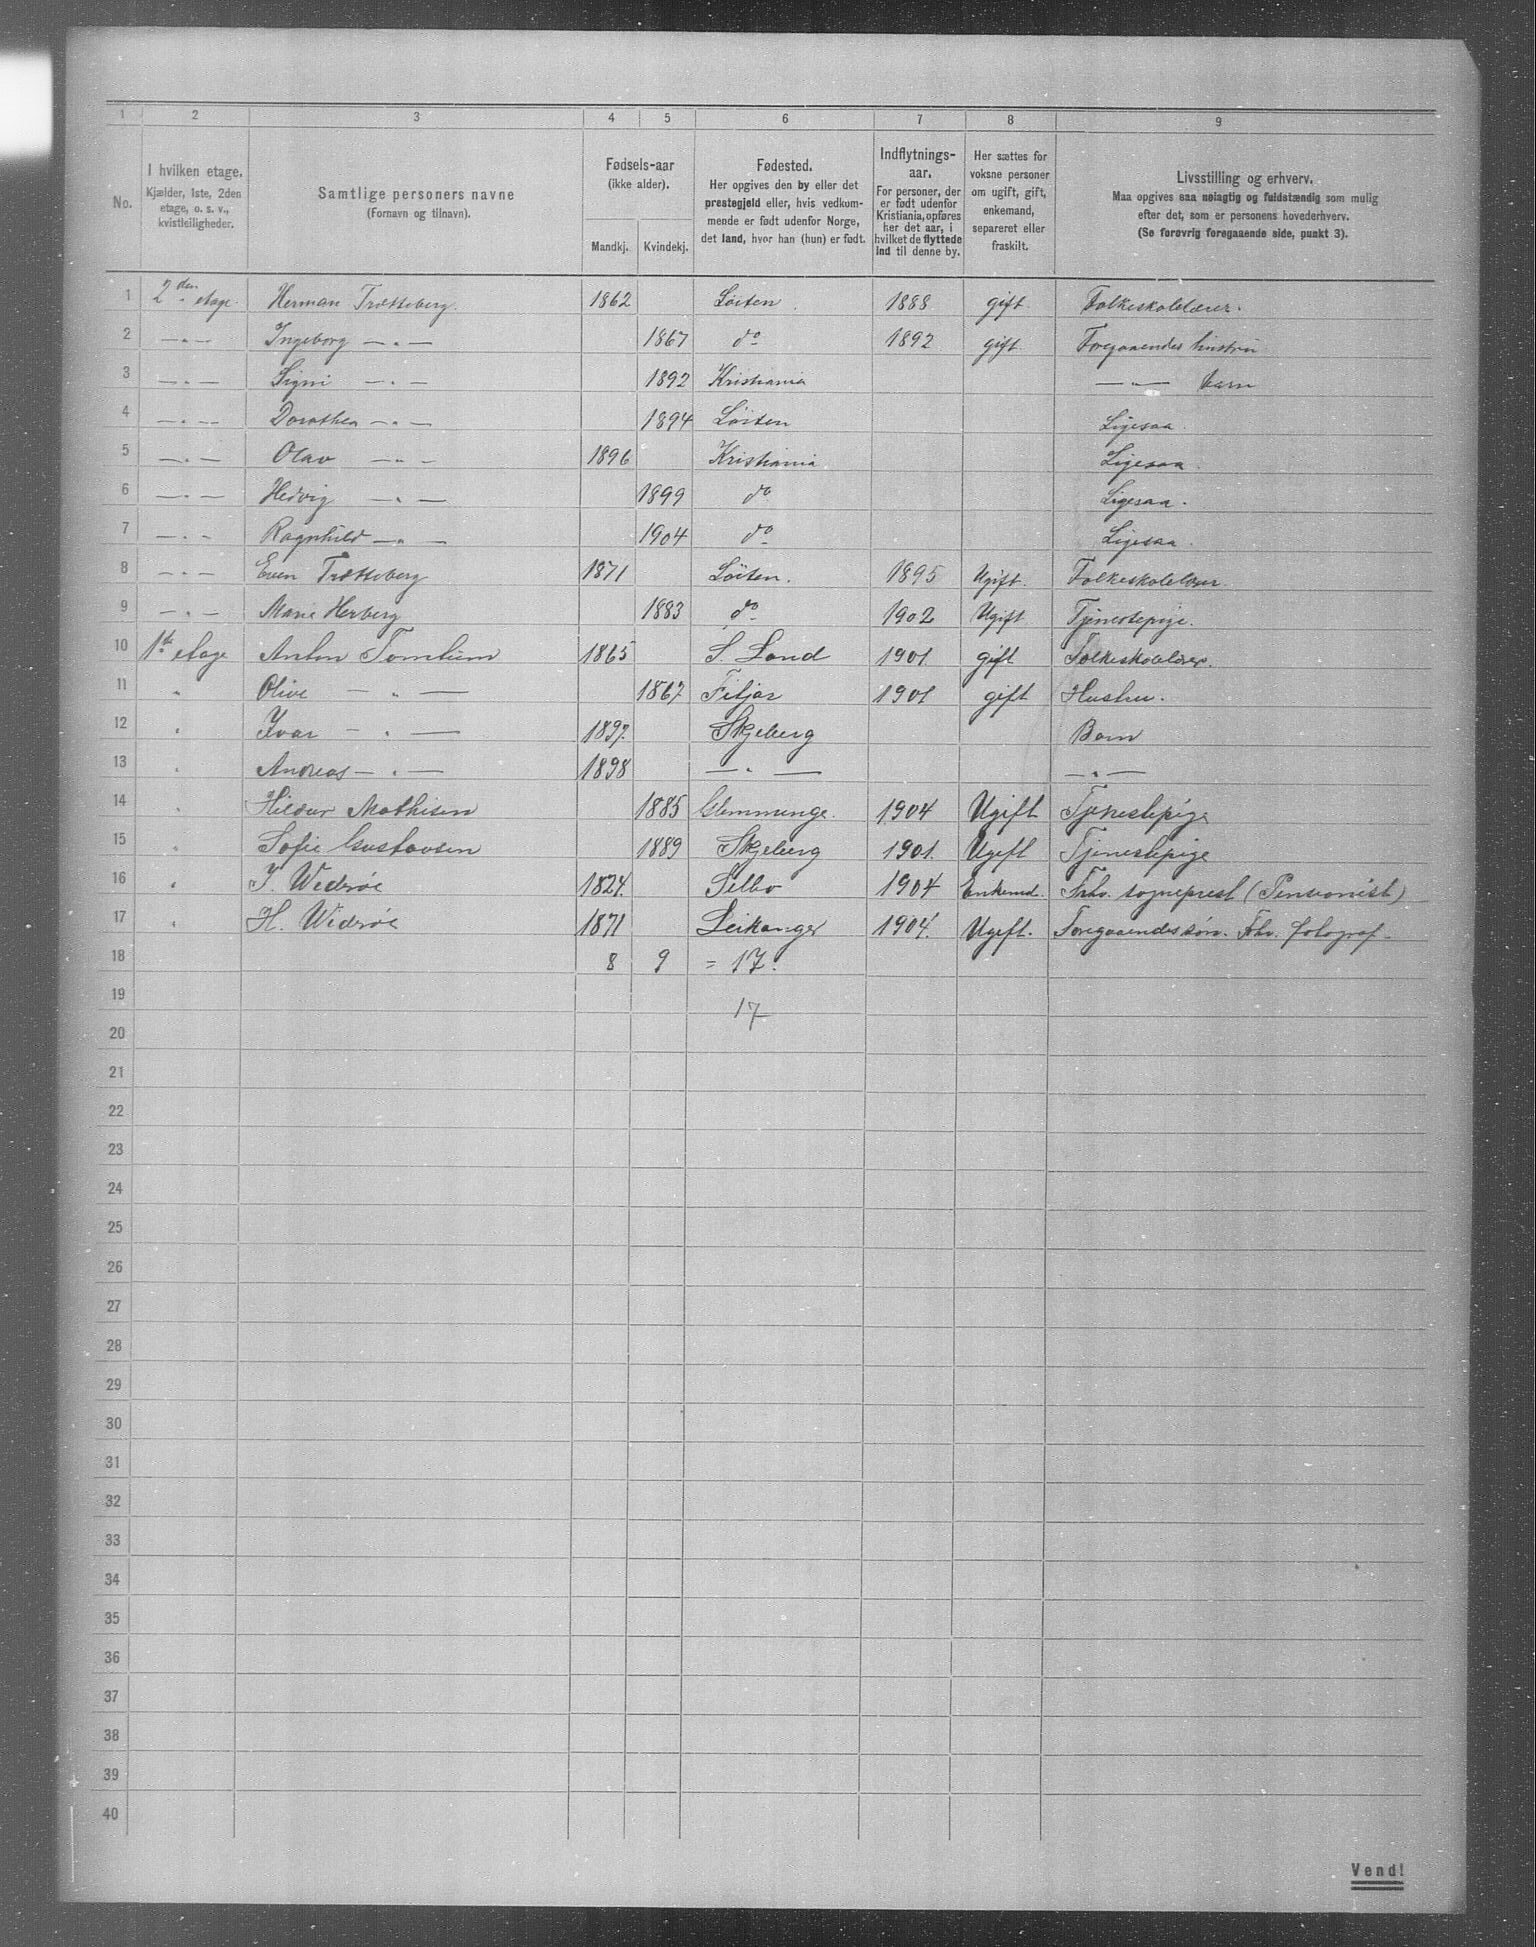 1 2 3 4 5 6 7 8 9
No.
I hvilken etage.
Kjælder, 1ste, 2den
etage, o. s. v.,
kvistleiligheder.
Samtlige personers navne
(Fornavn og tilnavn).
Fødsels-aar
(ikke alder).
Mandkj. Kvindekj.
Fødested.
Her opgives den by eller det
prestegjeld eller, hvis vedkom-
mende er født udenfor Norge,
det land, hvor han (hun) er født.
Indflytnings-
aar.
For personer, der
er født udenfor
Kristiania, opføres
her det aar, i
hvilket de flyttede
ind til denne by.
Her sættes for
voksne personer
om ugift, gift,
enkemand,
separeret eller
fraskilt.
Livsstilling og erhverv.
Maa opgives saa nøiagtig og fuldstændig som mulig
efter det, som er personens hovederhverv.
(Se forøvrig foregaaende side, punkt 3).
1 2den etage Herman Trætteberg. 1862 Løiten. 1888 gift Folkeskolelærer.
2 — " — Ingeborg — " — 1867 do 1892 gift Foregaaendes hustru
3 — " — Signi — " — 1892 Kristiania — " — barn
4 — " — Dorothea — " — 1894 Løiten Ligesaa.
5 — " — Olav — " — 1896 Kristiania. Ligesaa.
6 — " — Hedvig — " — 1899 do Ligesaa.
7 — " — Ragnhild — " — 1904 do Ligesaa.
8 — " — Even Trætteberg 1871 Løiten. 1895 Ugift. Folkeskolelærer.
9 — " — Marie Herberg 1883 do 1902 Ugift Tjenestepige.
10 1ste etage Anton Tomlum 1865 S. Land 1901 gift Folkeskolelærer.
11 " Olive — " — 1867 Fitjar 1901 gift Hustru.
12 " Ivar — " — 1897. Skjeberg Barn
13 " Andreas — " — 1898 — " — — " —
14 " Hildur Mathisen 1885 Glemminge. 1904 Ugift Tjenestepige
15 " Sofie Gustavsen 1889 Skjeberg 1901. Ugift Tjenestepige
16 " J. Widerøe 1824. Selbo 1904 Enkemd. Fhv. sogneprest (Pensionist)
17 " H. Widerøe 1871 Leikanger 1904. Ugift. Foregaaendes søn. Fhv. fotograf.
18 8 9 = 17.
19 17
20
21
22
23
24
25
26
27
28
29
30
31
32
33
34
35
36
37
38
39
40
Vend!